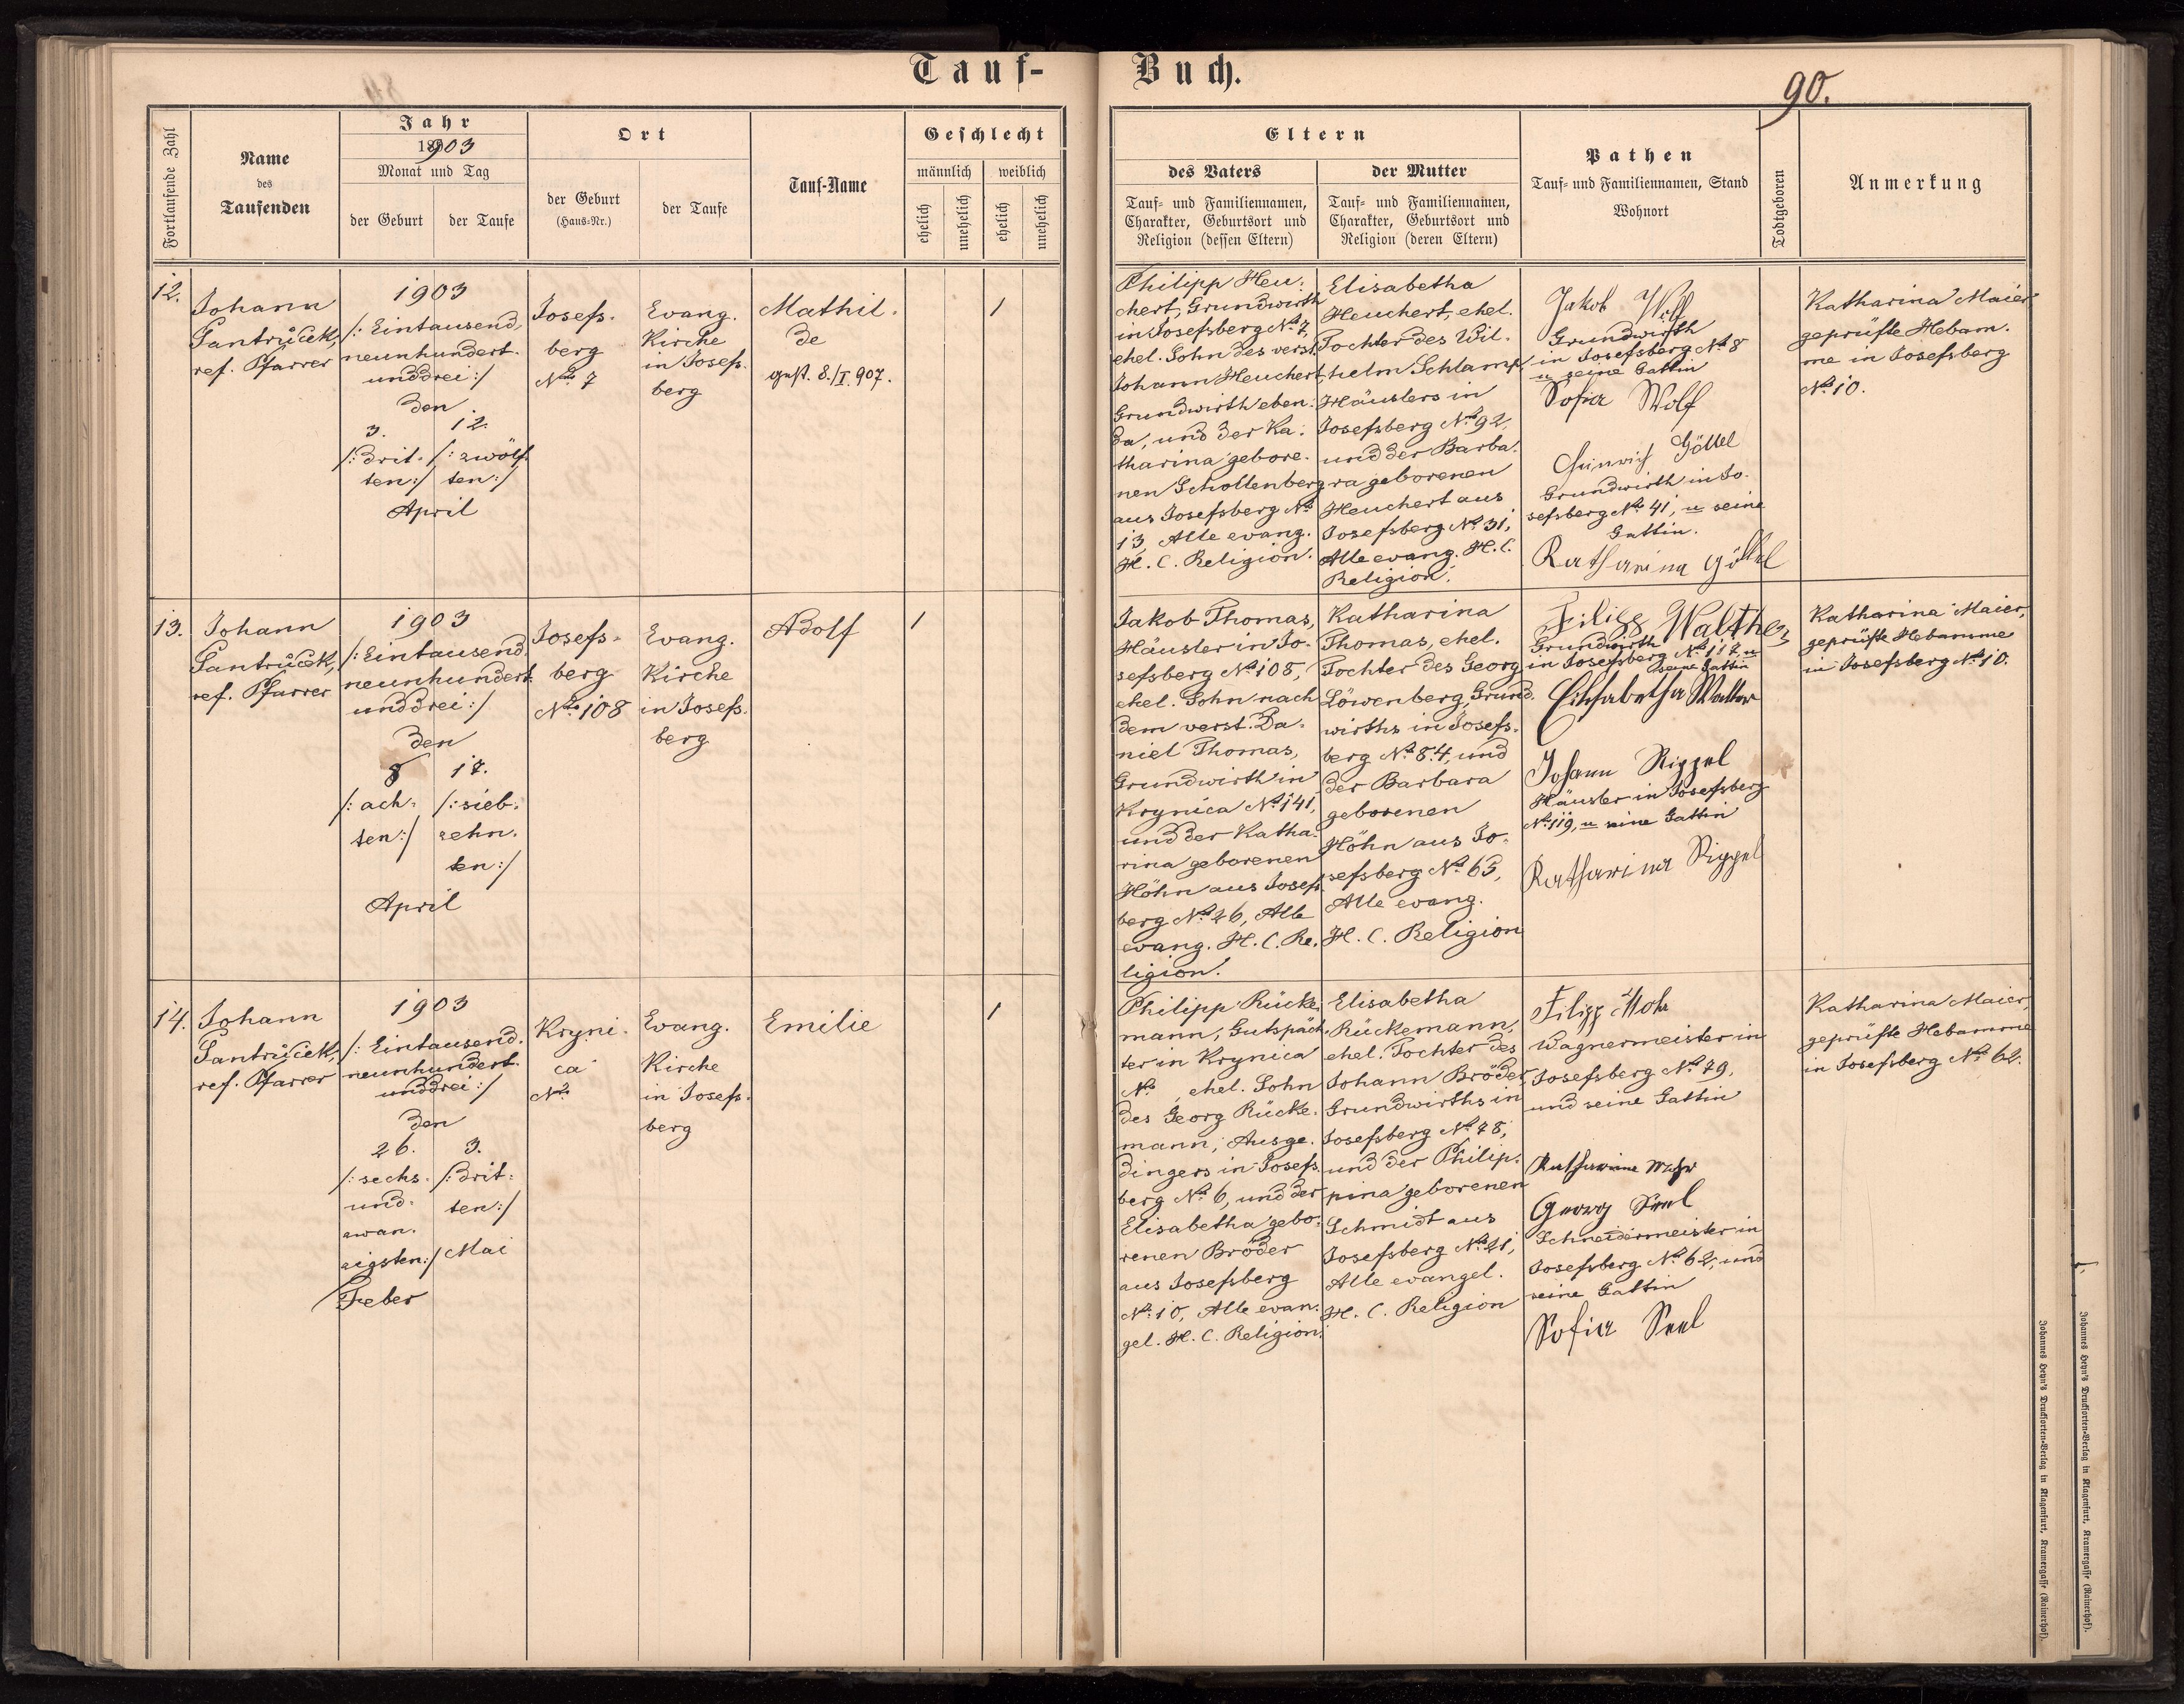 Tauf-
Buch.
90.
Fortlaufende Zahl
Name
des
Taufenden
Jahr
1903
Monat und Tag
der Geburt
der Taufe
Ort
der Geburt
(Haus-Nr.)
der Taufe
Tauf-Name
Geschlecht
männlich
weiblich
ehelich
unehelich
ehelich
unehelich
Eltern
des Vaters
Tauf- und Familiennamen,
Charakter, Geburtsort und
Religion (dessen Eltern)
der Mutter
Tauf- und Familiennamen,
Charakter, Geburtsort und
Religion (deren Eltern)
Pathen
Tauf- und Familiennamen, Stand
Wohnort
Todtgeboren
Anmerkung
12.
Johann
Santrůček,
ref. Pfarrer
1903
/: Eintausend,
neunhundert-
unddrei :/
den
3.
/: drit-
ten :/
12.
/: zwölf-
ten :/
April
Josefs-
berg
No. 7
Evang.
Kirche
in Josefs-
berg
Mathil-
de
gest. 8./I. 907.
1
Philipp Heu-
chert, Grundwirth
in Josefsberg No. 7,
ehel. Sohn des verst.
Johann Heuchert,
Grundwirth eben-
da, und der Ka-
tharina gebore-
nen Schollenberg
aus Josefsberg No.
13, Alle evang.
H. C. Religion.
Elisabetha
Heuchert, ehel.
Tochter des Wil-
helm Schlamp,
Häuslers in
Josefsberg No. 92,
und der Barba-
ra geborenen
Heuchert aus
Josefsberg No. 31,
Alle evang. H. C.
Religion.
Jakob Wolf
Grundwirth
in Josefsberg No. 8
u. seine Gattin
Sofia Wolf
Heinrich Göttel
Grundwirth in Jo-
sefsberg No. 41, u seine
Gattin.
Katharina Göttel
Katharina Maier
geprüfte Hebam-
me in Josefsberg
No. 10.
13.
Johann
Santrůček,
ref. Pfarrer
1903
/: Eintausend,
neunhundert-
unddrei :/
den
8
/: ach-
ten :/
17.
/: sieb-
zehn-
ten :/
April
Josefs-
berg
No. 108
Evang.
Kirche
in Josefs-
berg
Adolf
1
Jakob Thomas,
Häusler in Jo-
sefsberg No. 108,
ehel. Sohn nach
dem verst. Da-
niel Thomas,
Grundwirth in
Krynica No. 141,
und der Katha-
rina geborenen
Höhn aus Josefs-
berg No. 26, Alle
evang. H. C. Re-
ligion.
Katharina
Thomas, ehel.
Tochter des Georg
Löwenberg, Grund-
wirths in Josefs-
berg No. 84, und
der Barbara
geborenen
Höhn aus Jo-
sefsberg No. 63,
Alle evang.
H. C. Religion
Filipp Walther
Grundwirth
in Josefsberg No. 117, u
seine Gattin
Elisabetha Walter
Johann Rippel
Häusler in Josefsberg
No. 119, u seine Gattin
Katharina Rippel
Katharina Maier,
geprüfte Hebamme
in Josefsberg No. 10.
14.
Johann
Santrůček,
ref. Pfarrer
1903
/: Eintausend,
neunhundert-
unddrei :/
den
26.
/: sechs-
und-
zwan-
zigsten :/
Feber
3.
/: drit-
ten :/
Mai
Kryni-
ca
No.
Evang.
Kirche
in Josefs-
berg
Emilie
1
Philipp Rücke-
mann, Gutspäch-
ter in Krynica
No. , ehel. Sohn
des Georg Rücke-
mann, Ausge-
dingers in Josefs-
berg No. 6, und der
Elisabetha gebo-
renen Bröder
aus Josefsberg
No. 10, Alle evan-
gel. H. C. Religion.
Elisabetha
Rückemann,
ehel. Tochter des
Johann Bröder,
Grundwirths in
Josefsberg No. 78,
und der Philip-
pina geborenen
Schmidt aus
Josefsberg No. 21,
Alle evangel.
H. C. Religion
Filipp Mohr
Wagnermeister in
Josefsberg No. 79,
und seine Gattin
Katharina Mohr
Georg Seel
Schneidermeister in
Josefsberg No. 62, und
seine Gattin
Sofia Seel
Katharina Maier,
geprüfte Hebamme
in Josefsberg No. 62.
Johannes Heyn's Drucksorten-Verlag in Klagenfurt, Kramergasse (Rainerhof).
Johannes Heyn's Drucksorten-Verlag in Klagenfurt, Kramergasse (Rainerhof).